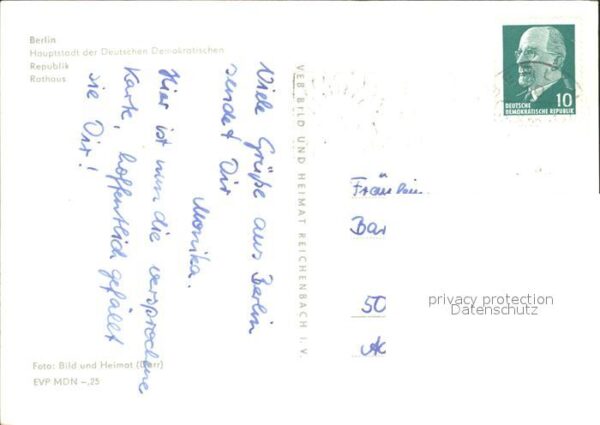 Berlin
Hauptstadt der Deutschen Demokratischen
Republik
Rathaus
Viele Grüße aus Berlin
sendet Dir
Monika.
Hier ist nun die versprochene
Karte, hoffentlich gefällt
sie Dir!
Foto: Bild und Heimat (Darr)
EVP MDN –,25
VEB BILD UND HEIMAT REICHENBACH I. V.
10
DEUTSCHE
DEMOKRATISCHE REPUBLIK
Fräulein
Bar
50
privacy protection
Datenschutz